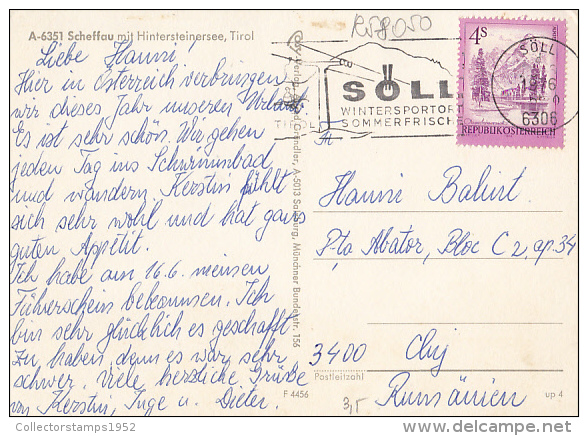 A-6351 Scheffau mit Hintersteinersee, Tirol
R58050
Liebe Hanni,
Hier in Österreich verbringen
wir dieses Jahr unseren Urlaub.
Es ist sehr schön. Wir gehen
jeden Tag ins Schwimmbad
und wandern. Kerstin fühlt
sich sehr wohl und hat ganz
guten Appetit.
Ich habe am 16.6. meinen
Führerschein bekommen. Ich
bin sehr glücklich es geschafft
zu haben, denn es war sehr
schwer. Viele herzliche Grüße
von Kerstin, Inge u. Dieter.
A-5013 Salzburg, Münchner Bundesstr. 156
TIROL
SÖLL
WINTERSPORTORT
SOMMERFRISCH
4S
REPUBLIK ÖSTERREICH
SÖLL
6306
Hanni
P-ta Abator, Bloc C2, ap. 34
3400 Cluj
Postleitzahl
Rumänien
F 4456
3,5
up 4
Collectorstamps1952
delcampe.net